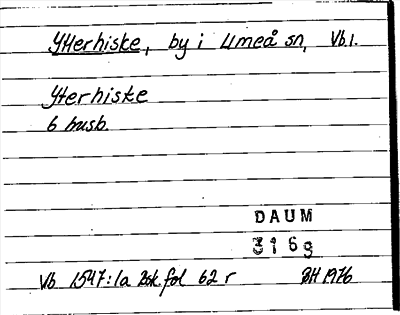 Ytterhiske, by i Umeå sn, Vb.
Yterhiske
6 husb.
DAUM
3169
Vb 1547:1a Bsk. fol 62 r BH 1976